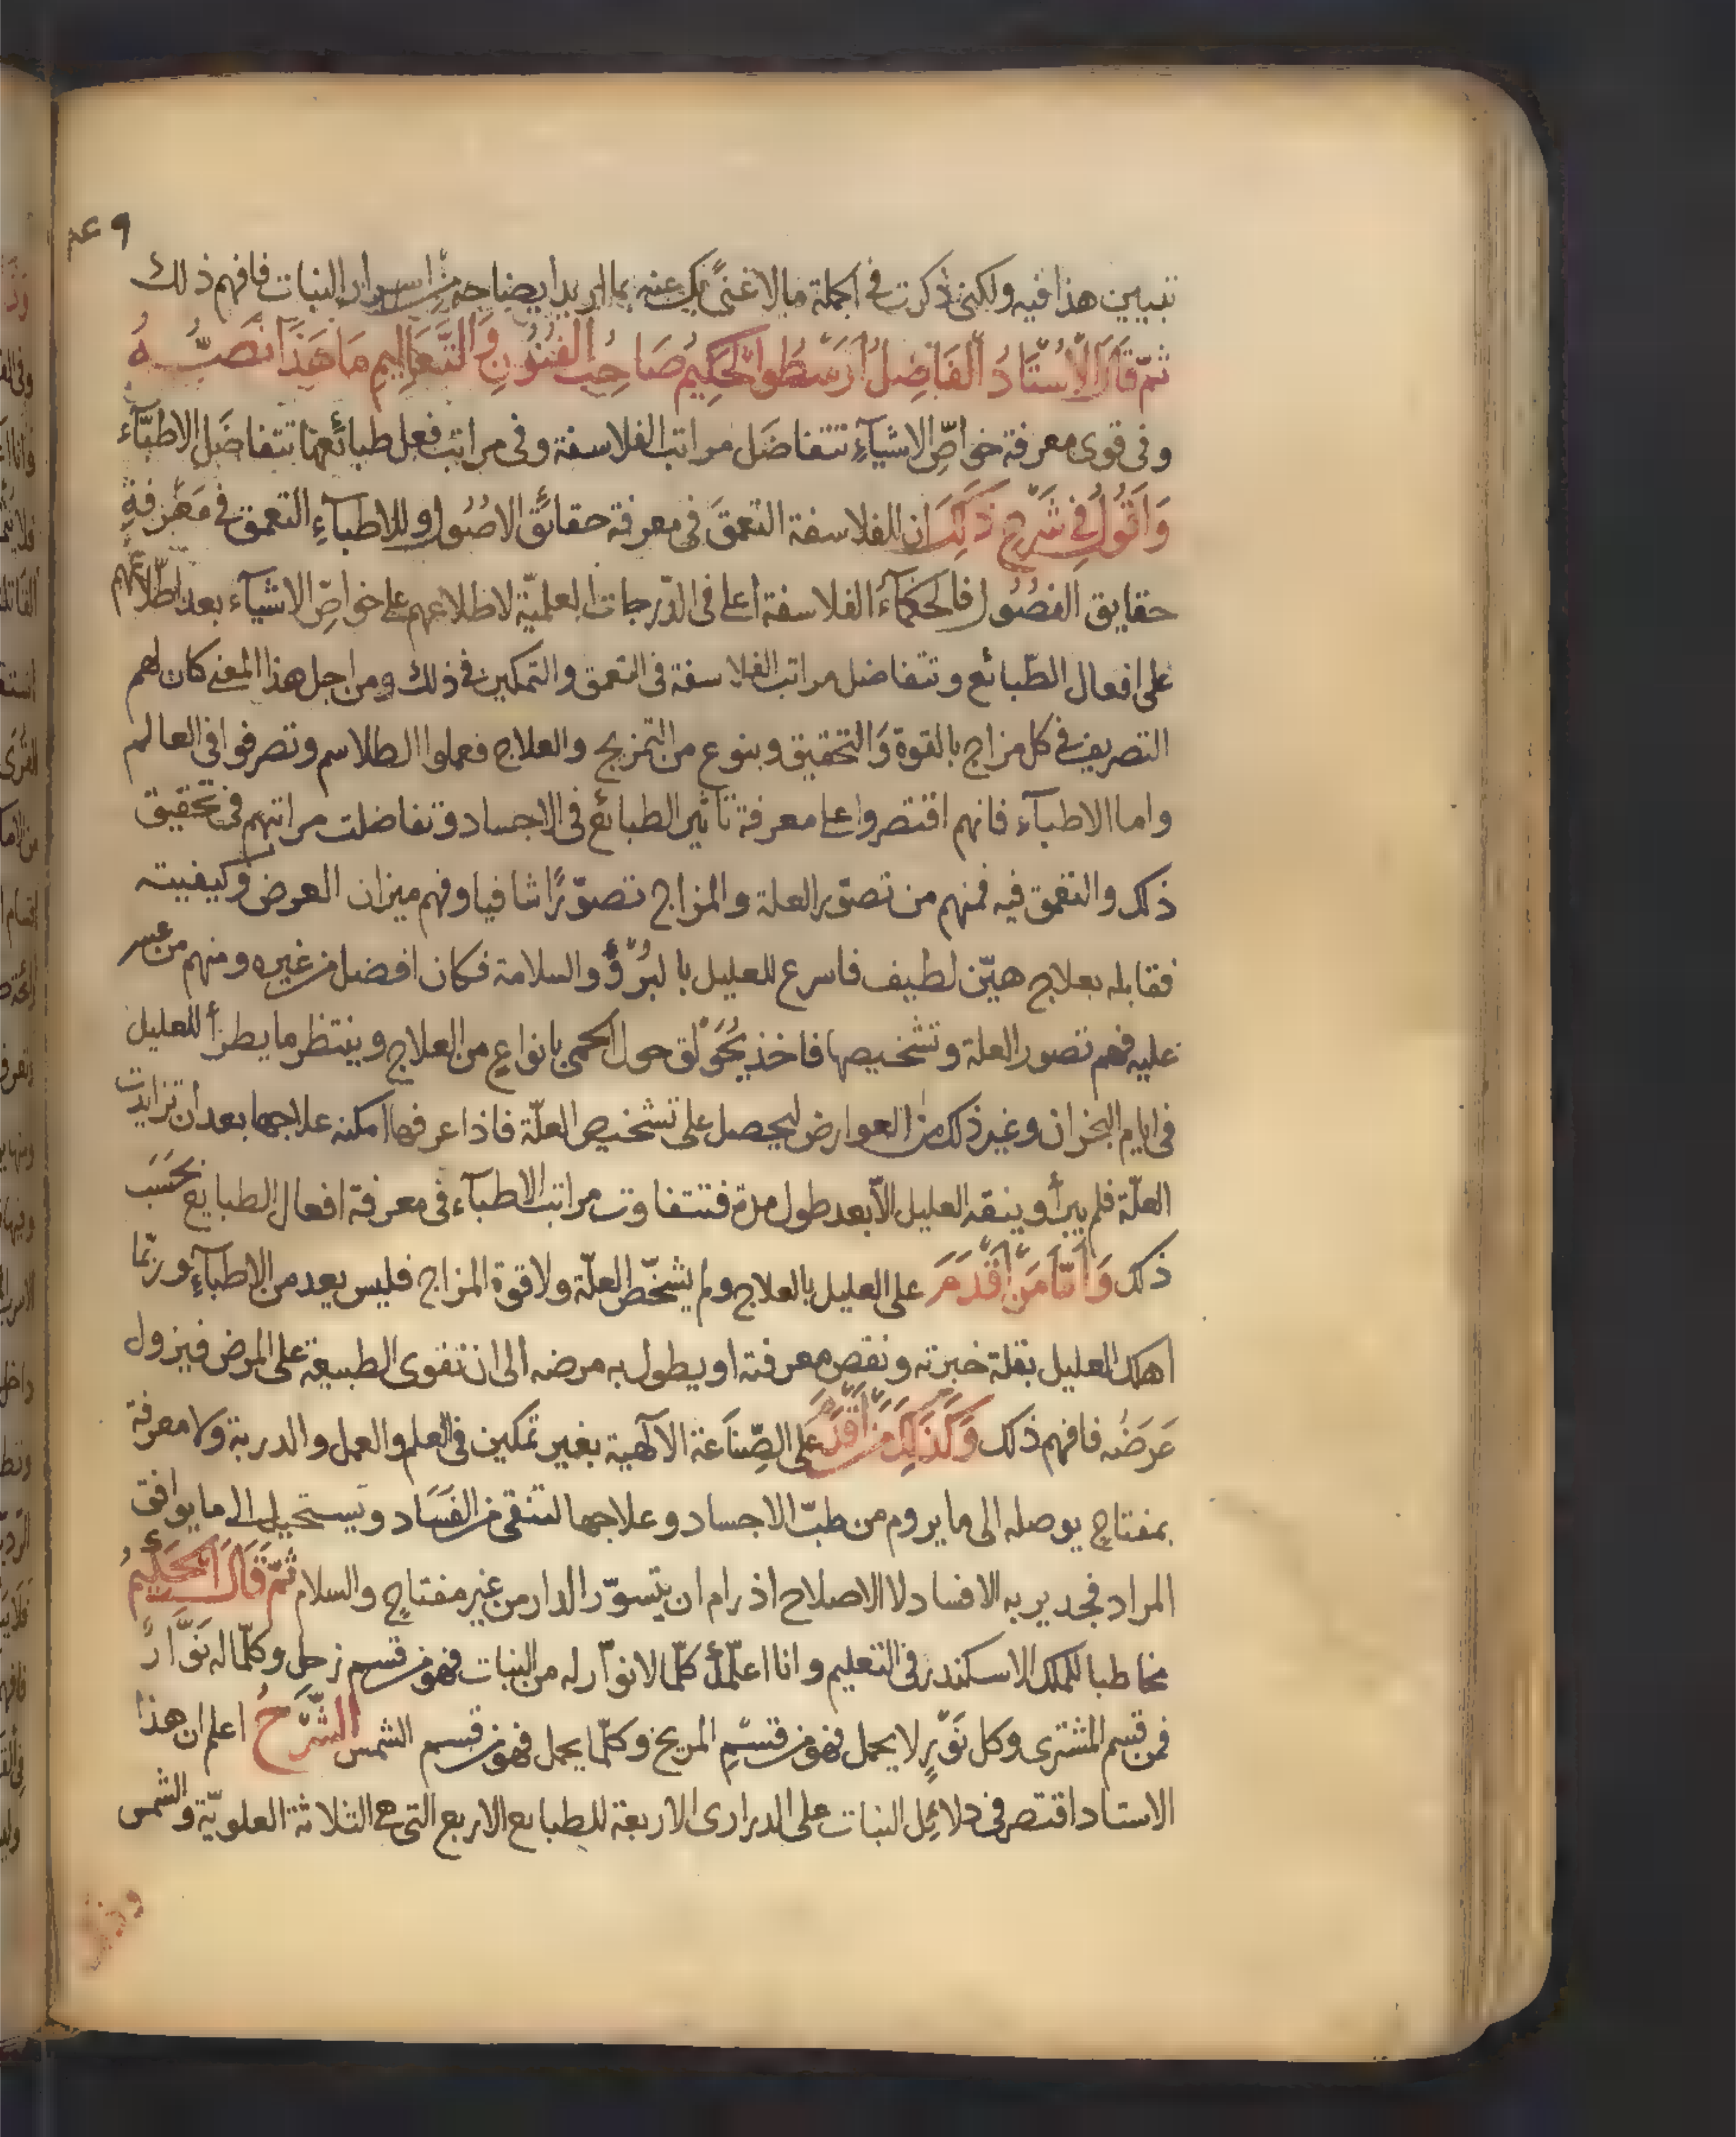 تبيين هذا فيه ولكنى ذكرت فى الجملة ما لا غنىً بك عنه بما اريد ايضاحه من اسرار النبات فافهم ذلك
ثمّ قَالَ الاُسْتَادُ الفَاضِلُ ارَسْطُوا الحَكِيمُ صَاحِبُ الفُنُونِ وَالتَّعَالِيمِ مَا هَذَا نَصُّهُ
وفى قوى معرفة خواصِّ الاشيآءِ تتفاضَل مراتب الفلاسفة وفى مراتب فعل طبائعها تتفاضَل الاطبّآء
وَاَقُولُ فى شَرْحِ ذَلِكَ ان للفلاسفة التعمقَ فى معرفة حقائق الاصُول وللاطبآءِ التعمق فى مَعْرفةِ
حقايق الفصُول فالحكمآءُ الفلاسفة اعلى فى الدّرجات العلميّة لاطلاعهم على خواصِّ الاشيآء بعد اطّلاعهم
على افعال الطّبائع وتتفاضل مراتب الفلاسفة فى التعمق والتمكين فى ذلك ومن اجل هذا المعنى كان لهم
التصريف فى كل مزاج بالقوة وَالتحقيق وبنوع من التمزيج والعلاج فعملوا الطلاسم وتصرفوا فى العالم
واما الاطبآء فانهم اقتصروا على معرفة تأثير الطبائع فى الاجساد وتفاضلت مراتبهم فى تحقيق
ذلك والتعمق فيه فمنهم من تصوّر العلة والمزاج تصوّرًا شافيا وفهم ميزان العرض وكيفيته
فقابله بعلاج هيّن لطيف فاسرع للعليل بالبُرْؤِ والسلامة فكان افضل من غيره ومنهم من عسر
عليه فهم تصور العلة وتشخيصها فاخذ يُحَوْلق حول الحمى بانواعٍ من العلاج وينتظر ما يطرأ للعليل
فى ايام البخران وغير ذلك من العوارض ليحصل على تشخيص العلّة فاذا عرفها امكنه علاجها بعد ان تزايدت
العلّة فلم يبرأ وينقه العليل الّا بعد طول مدة فتتفاوت مراتب الاطبآء فى معرفة افعال الطبايع بحَسَب
ذلك وَأمّا مَنْ اَقْدَمَ على العليل بالعلاج ولم يشخّص العلّة ولا قوة المزاج فليس يعد من الاطبآءِ وربّما
اهلك العليل بقلة خبرته ونقص معرفته او يطول به مرضه الى ان تقوى الطبيعة على المرض فيزول
عَرَضُه فافهم ذلك وَكَذَلِكَ مَنْ اَقْدَمَ على الصِّنَاعَة الآلهية بغير تمكين فى العلم والعمل والدربة ولا معرفة
بمفتاحٍ يوصله الى ما يروم من طبّ الاجساد وعلاجها لتنقى من الفَسَاد وتستحيل الى ما يوافق
المراد فجدير به الافساد لا الاصلاح اذ رام ان يتسوّر الدار من غير مفتاحٍ والسلام ثمّ قَالَ الحَكِيمُ
مخاطبا للملك الاسكندر فى التعليم وانا اعلّمك كلّما لا نوّار له من النبات فهو من قسم زحل وكلّما له نَوَّارٌ
فمن قسم المشترى وكل نَوْرٍ لا يحمل فهو من قسمِ المريخ وكلّما يحمل فهو من قسم الشمس الشَّرْحُ اعلم ان هذا
الاستاد اقتصر فى دلائِل النبات على الدرارى الاربعة للطبايع الاربع التى هى الثلاثة العلويّة والشمس